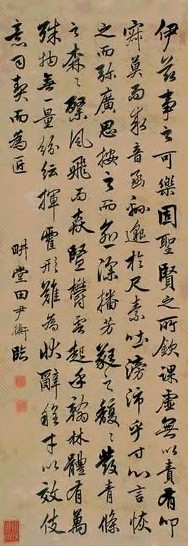 伊茲事之可樂固聖賢之所欽課虛無以責有叩
寂寞而求音函綿邈於尺素吐滂沛乎寸心言恢
之而彌廣思按之而愈深播芳蕤之馥馥發青條
之森森粲風飛而猋豎鬱雲起乎翰林體有萬
殊物無一量紛紜揮霍形難為狀辭程才以效伎
意司契而為匠
畊堂田尹衡臨